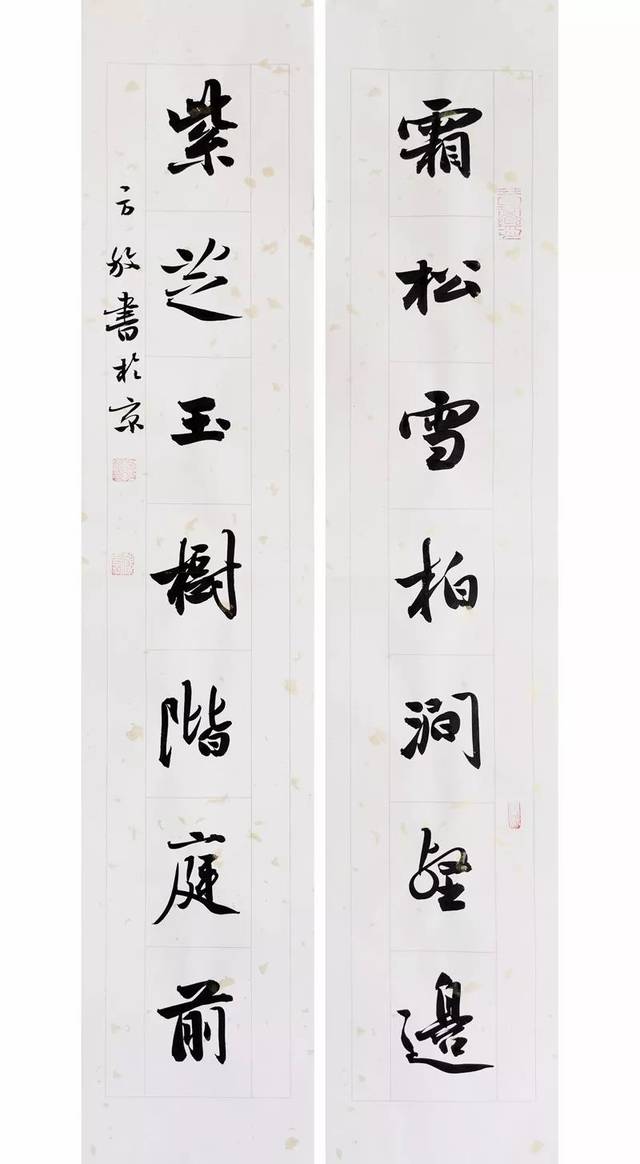 霜松雪柏涧壑邊
紫芝玉樹階庭前
方放書於京